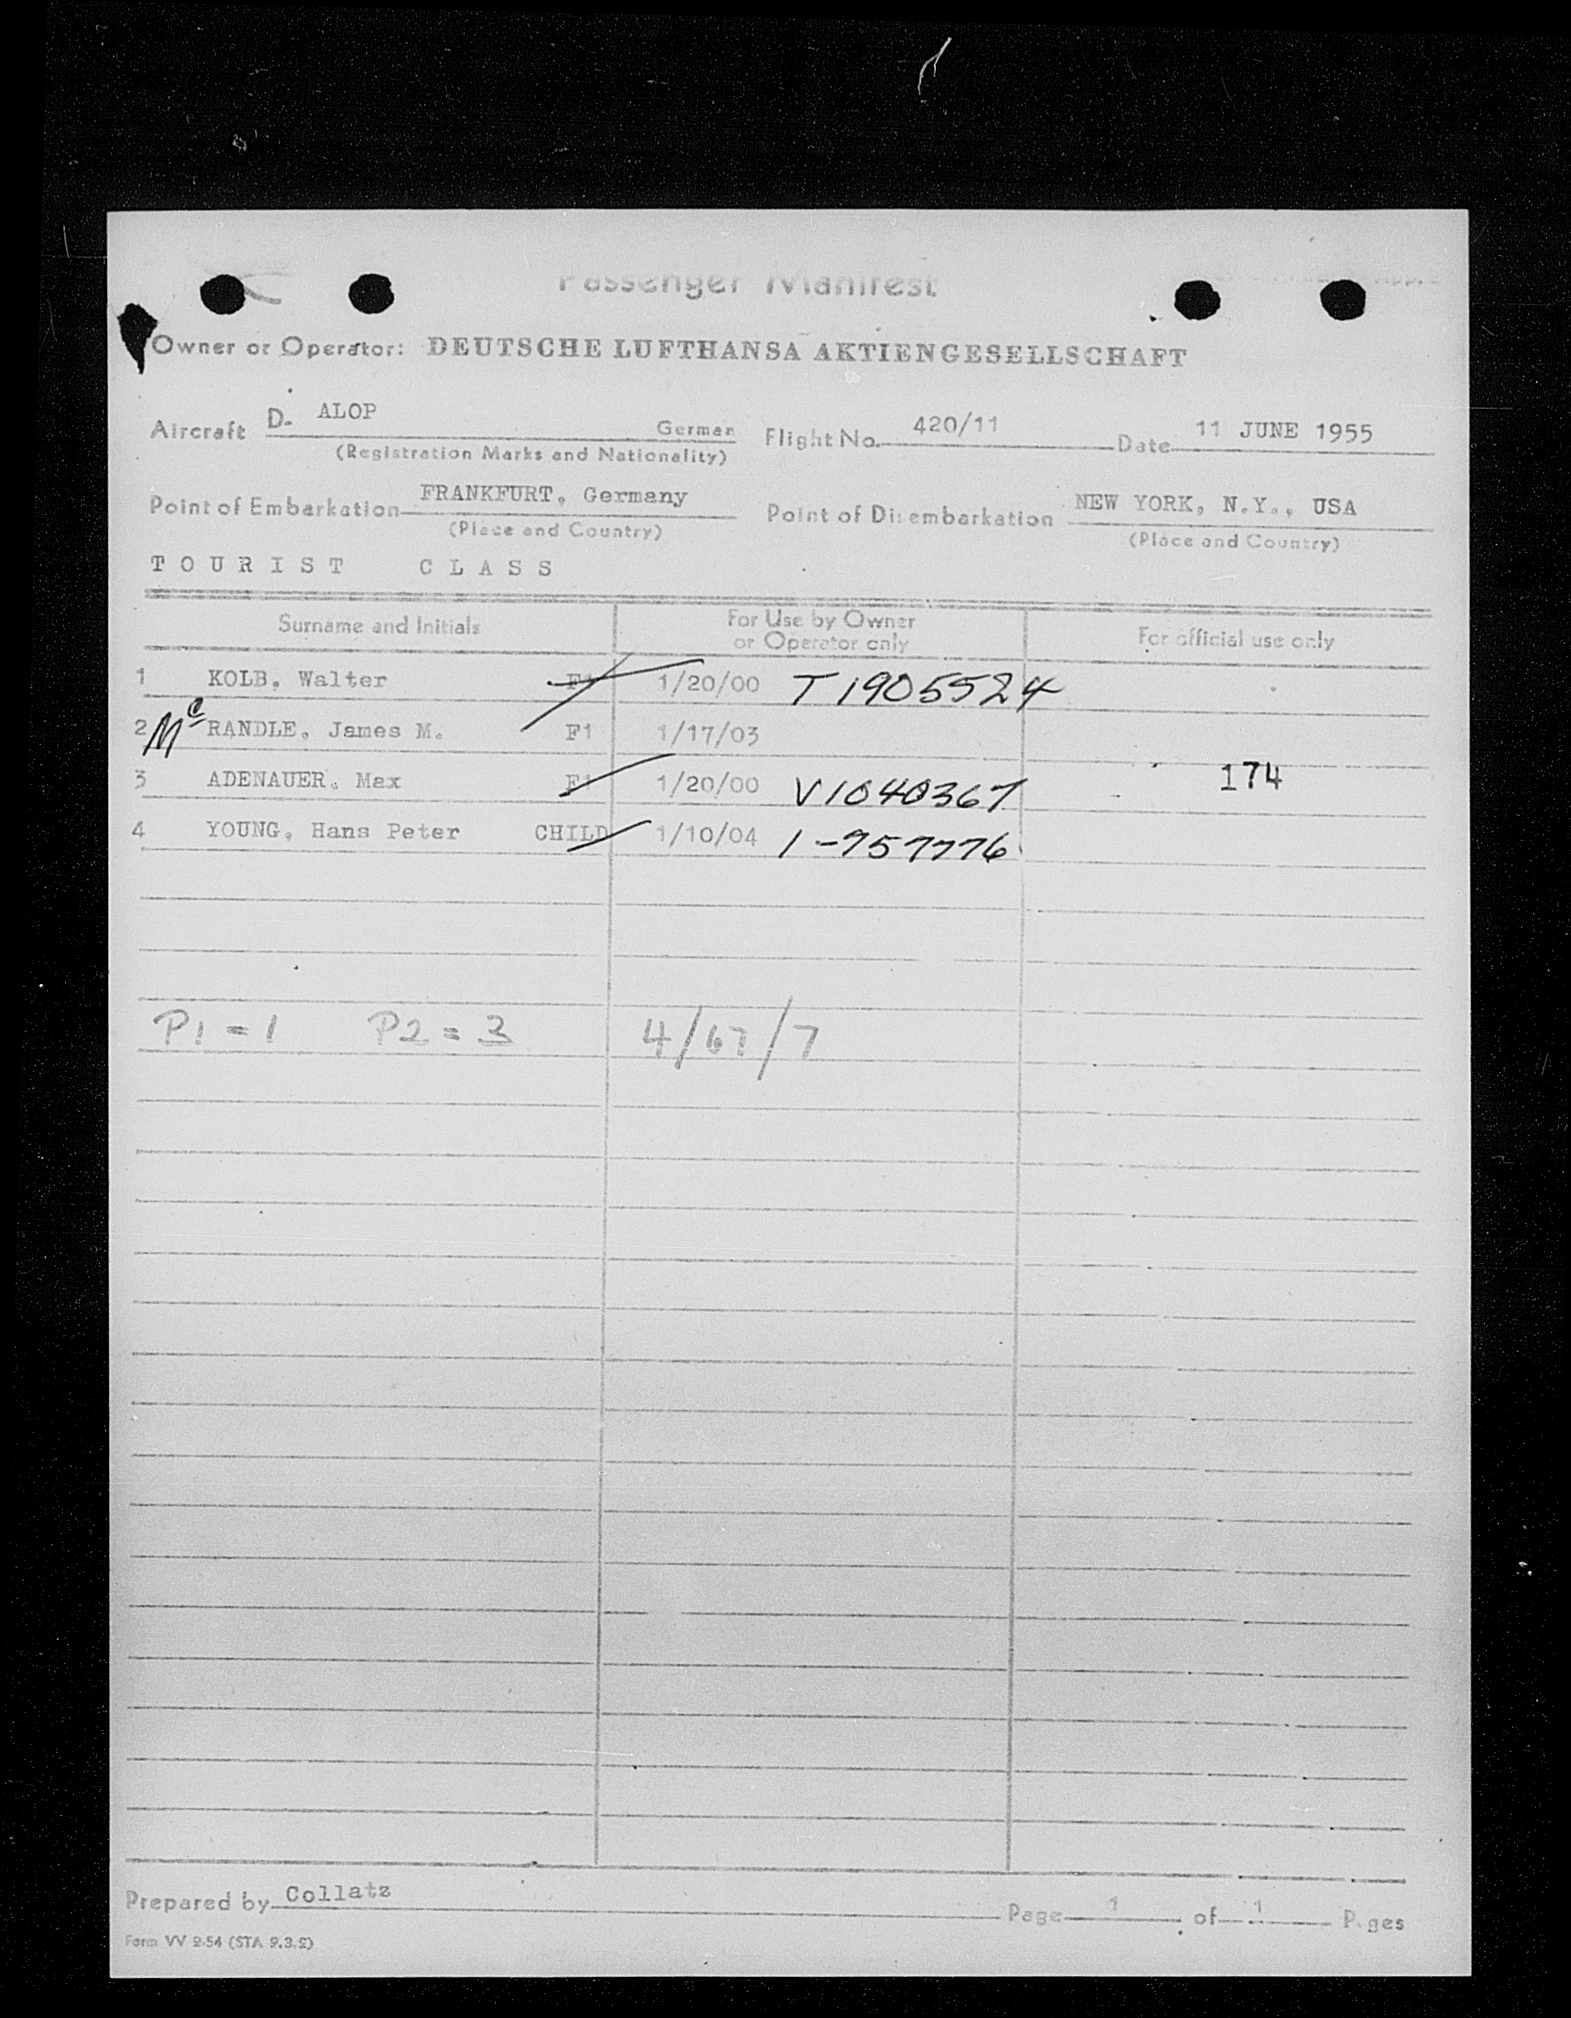 Passenger Manifest
Owner or Operator: DEUTSCHE LUFTHANSA AKTIENGESELLSCHAFT
Aircraft D- ALOP German Flight No. 420/11 Date 11 JUNE 1955
(Registration Marks and Nationality)
Point of Embarkation FRANKFURT, Germany Point of Disembarkation NEW YORK, N.Y., USA
(Place and Country) (Place and Country)
TOURIST CLASS
Surname and Initials For Use by Owner or Operator only For official use only
1 KOLB, Walter F1 1/20/00 T1905524
2 Mc RANDLE, James M. F1 1/17/03
3 ADENAUER, Max F1 1/20/00 V1040367 174
4 YOUNG, Hans Peter CHILD 1/10/04 1-957776
P1 = 1 P2 = 3 4/67/7
Prepared by Collatz Page 1 of 1 Pages
Form VV 2-54 (STA 9.3.2)